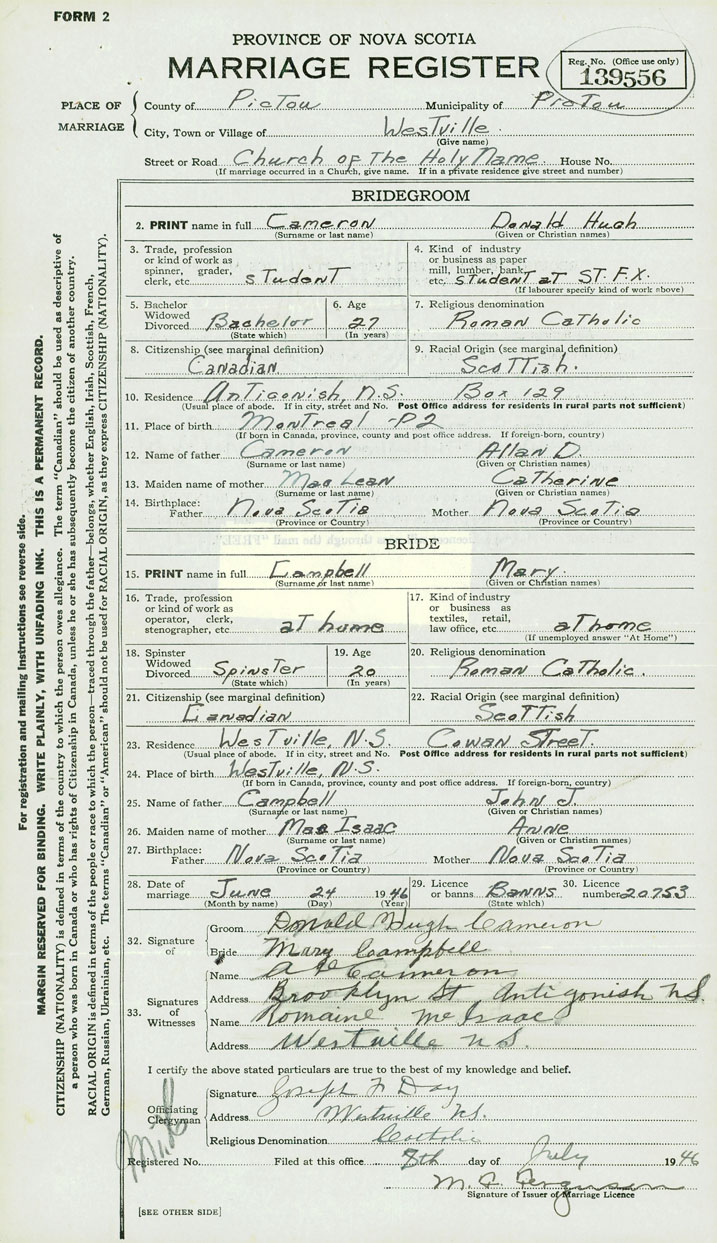 FORM 2
PROVINCE OF NOVA SCOTIA
MARRIAGE REGISTER
Reg. No. (Office use only)
139556
PLACE OF MARRIAGE
County of Pictou Municipality of Pictou
City, Town or Village of Westville
(Give name)
Street or Road Church of The Holy Name House No.
(If marriage occurred in a Church, give name. If in a private residence give street and number)
BRIDEGROOM
2. PRINT name in full Cameron Donald Hugh
(Surname or last name) (Given or Christian names)
3. Trade, profession or kind of work as spinner, grader, clerk, etc. Student
4. Kind of industry or business as paper mill, lumber, bank, etc. Student at ST. F.X.
(If labourer specify kind of work above)
5. Bachelor Widowed Divorced Bachelor
(State which)
6. Age 27
(In years)
7. Religious denomination
Roman Catholic
8. Citizenship (see marginal definition)
Canadian
9. Racial Origin (see marginal definition)
Scottish.
10. Residence Antigonish, N.S. Box 129
(Usual place of abode. If in city, street and No. Post Office address for residents in rural parts not sufficient)
11. Place of birth Montreal - P2
(If born in Canada, province, county and post office address. If foreign-born, country)
12. Name of father Cameron Allan D.
(Surname or last name) (Given or Christian names)
13. Maiden name of mother Mac Lean Catherine
(Surname or last name) (Given or Christian names)
14. Birthplace: Father Nova Scotia Mother Nova Scotia
(Province or Country) (Province or Country)
BRIDE
15. PRINT name in full Campbell Mary
(Surname or last name) (Given or Christian names)
16. Trade, profession or kind of work as operator, clerk, stenographer, etc. at home
17. Kind of industry or business as textiles, retail, law office, etc. at home
(If unemployed answer "At Home")
18. Spinster Widowed Divorced Spinster
(State which)
19. Age 20
(In years)
20. Religious denomination
Roman Catholic.
21. Citizenship (see marginal definition)
Canadian
22. Racial Origin (see marginal definition)
Scottish
23. Residence Westville, N.S. Cowan Street.
(Usual place of abode. If in city, street and No. Post Office address for residents in rural parts not sufficient)
24. Place of birth Westville, N.S.
(If born in Canada, province, county and post office address. If foreign-born, country)
25. Name of father Campbell John J.
(Surname or last name) (Given or Christian names)
26. Maiden name of mother Mac Isaac Anne
(Surname or last name) (Given or Christian names)
27. Birthplace: Father Nova Scotia Mother Nova Scotia
(Province or Country) (Province or Country)
28. Date of marriage June 24 1946
(Month by name) (Day) (Year)
29. Licence or banns Banns
(State which)
30. Licence number 20753
32. Signature of
Groom Donald Hugh Cameron
Bride Mary Campbell
33. Signatures of Witnesses
Name Cameron
Address Brooklyn St Antigonish N.S.
Name Romaine McIsaac
Address Westville N.S.
I certify the above stated particulars are true to the best of my knowledge and belief.
Officiating Clergyman
Signature Joseph F Day
Address Westville N.S.
Religious Denomination Catholic
Registered No. Filed at this office 8th day of July 1946
M. C. Ferguson
Signature of Issuer of Marriage Licence
[SEE OTHER SIDE]
For registration and mailing instructions see reverse side.
MARGIN RESERVED FOR BINDING. WRITE PLAINLY, WITH UNFADING INK. THIS IS A PERMANENT RECORD.
CITIZENSHIP (NATIONALITY) is defined in terms of the country to which the person owes allegiance. The term "Canadian" should be used as descriptive of
a person who was born in Canada or who has rights of Citizenship in Canada, unless he or she has subsequently become the citizen of another country.
RACIAL ORIGIN is defined in terms of the people or race to which the person—traced through the father—belongs, whether English, Irish, Scottish, French,
German, Russian, Ukrainian, etc. The terms "Canadian" or "American" should not be used for RACIAL ORIGIN, as they express CITIZENSHIP (NATIONALITY).